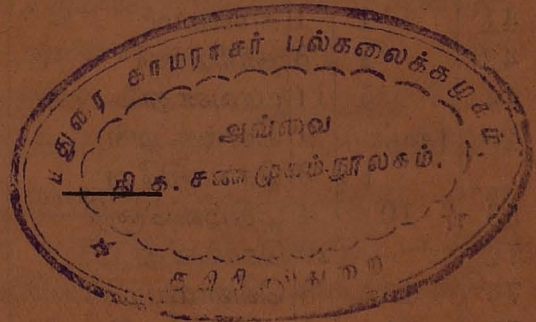 மதுரை காமராசர் பல்கலைக்கழகம்
அவ்வை
தி க. சண்முகம் நூலகம்.